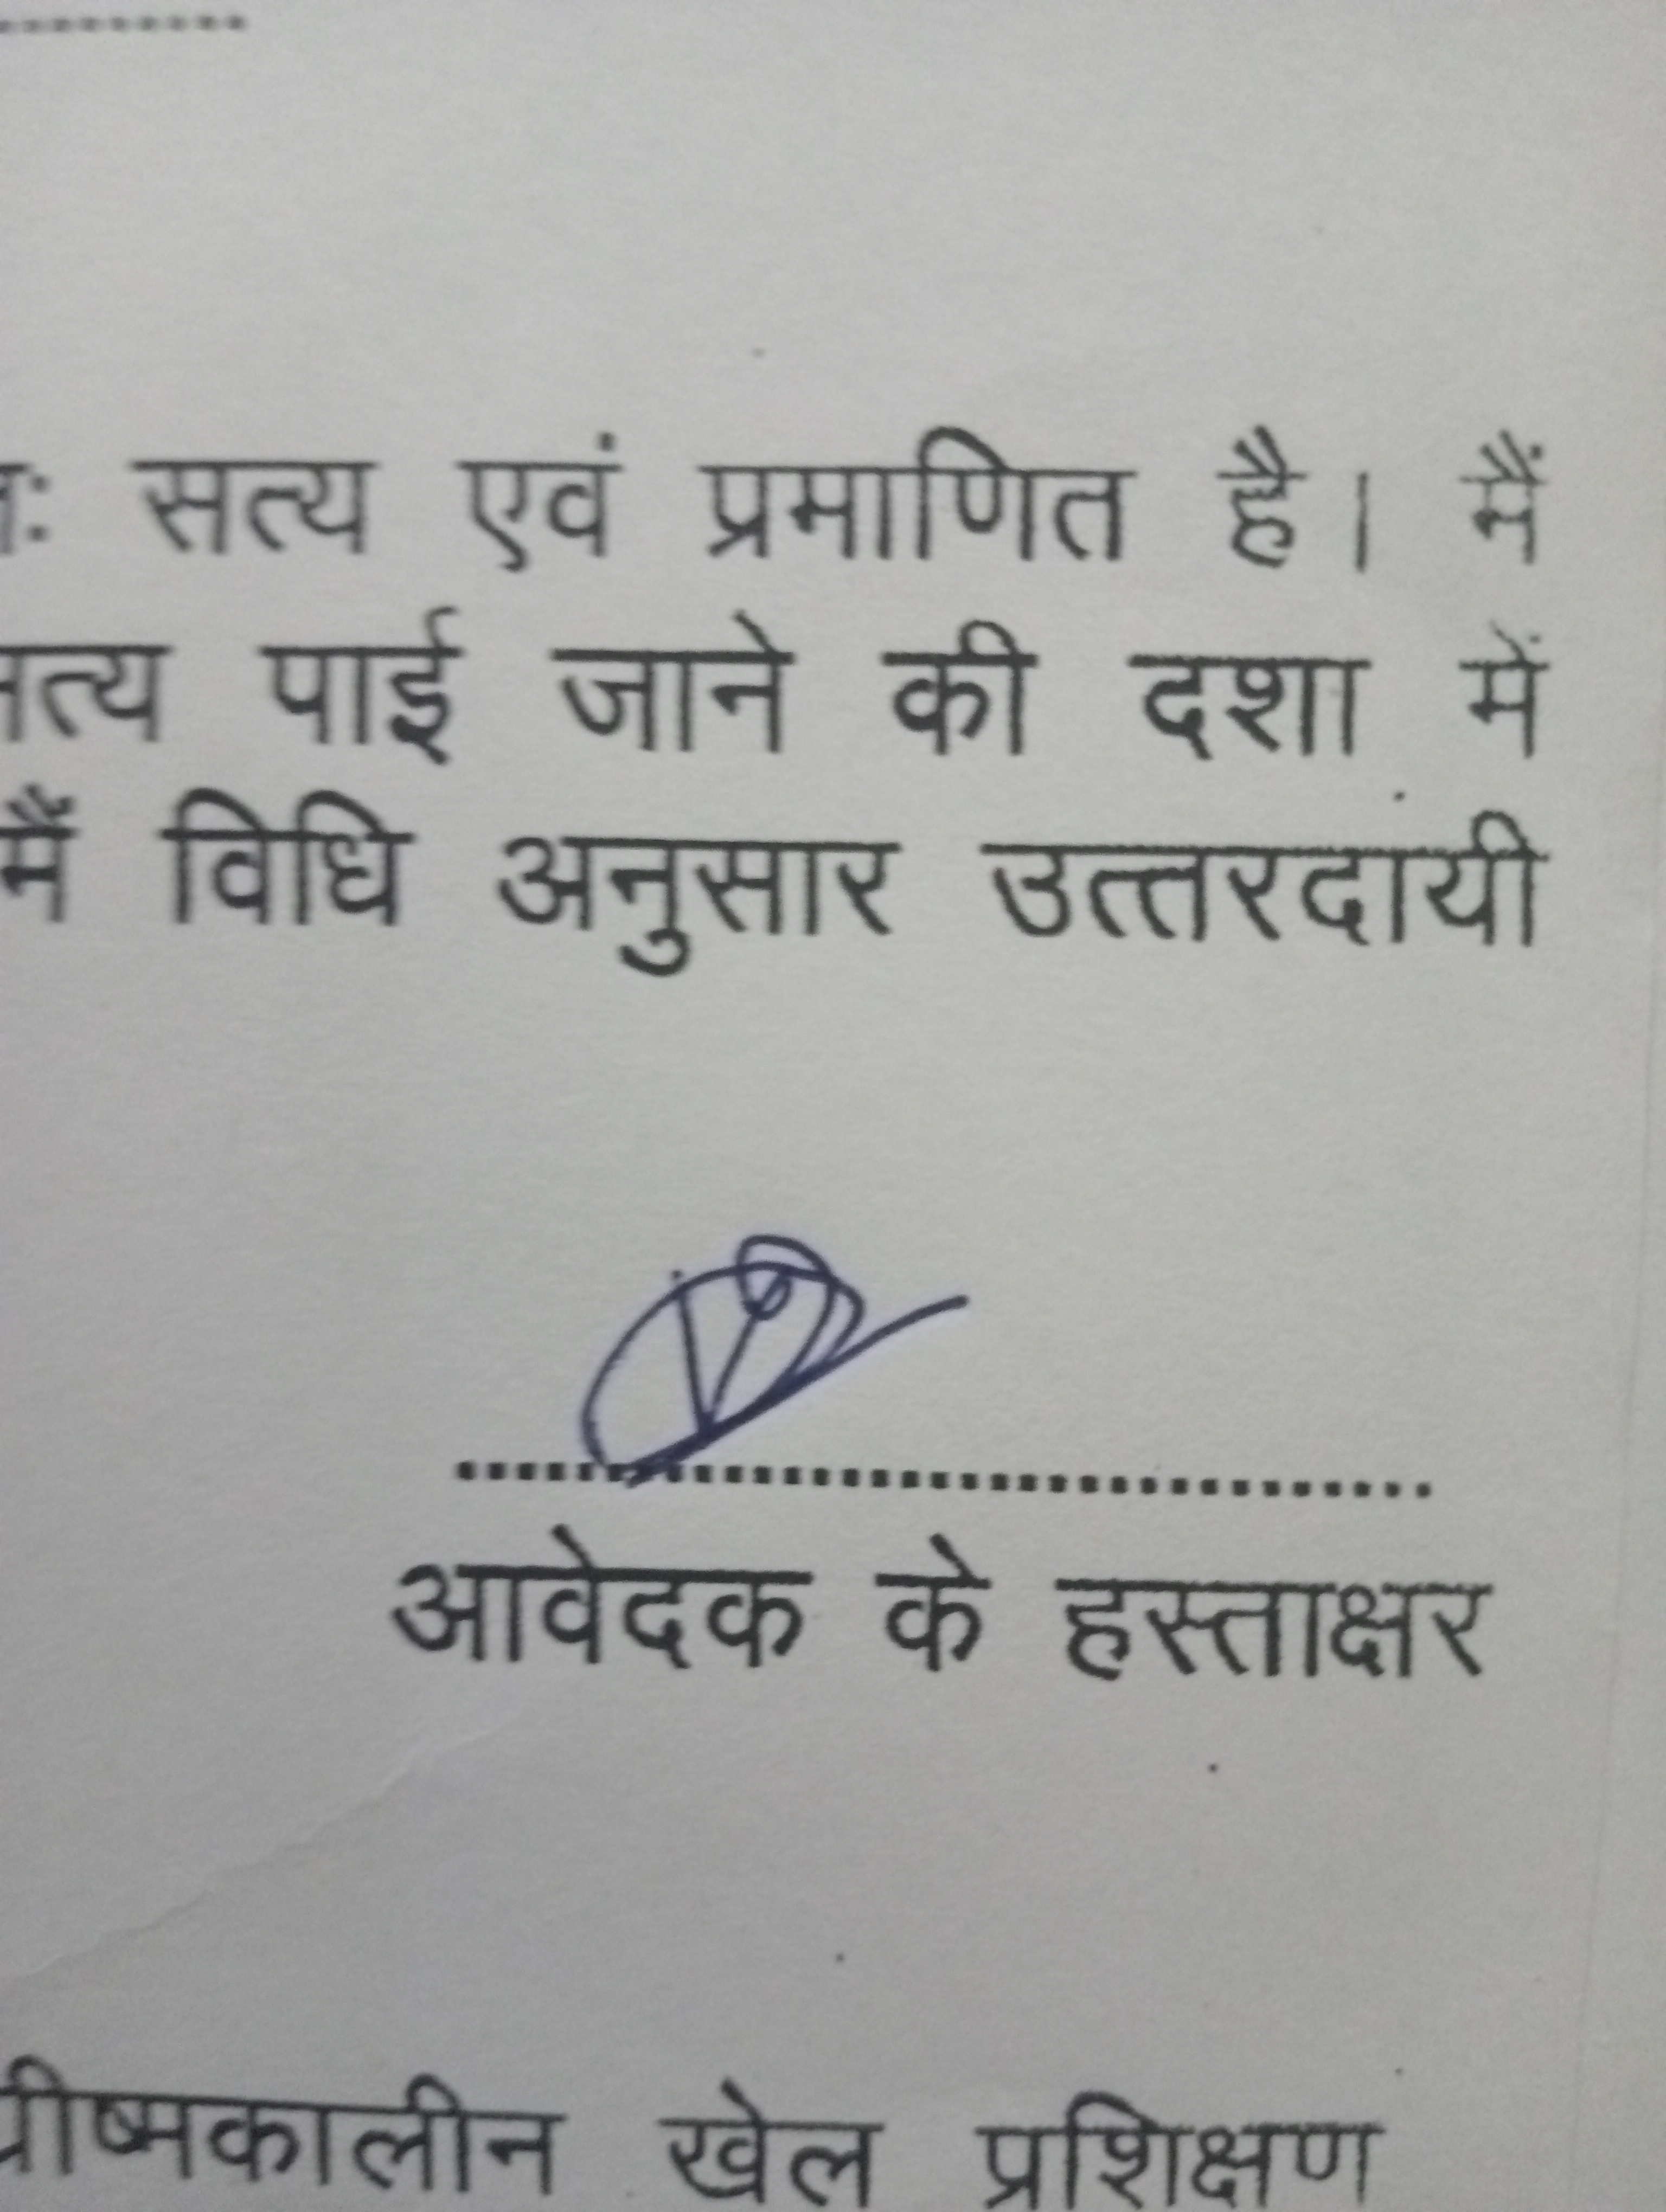 सत्य एवं प्रमाणित है। मैं
पाई जाने की दशा में
मैं विधि अनुसार उत्तरदायी
आवेदक के हस्ताक्षर
ग्रीष्मकालीन खेल प्रशिक्षण